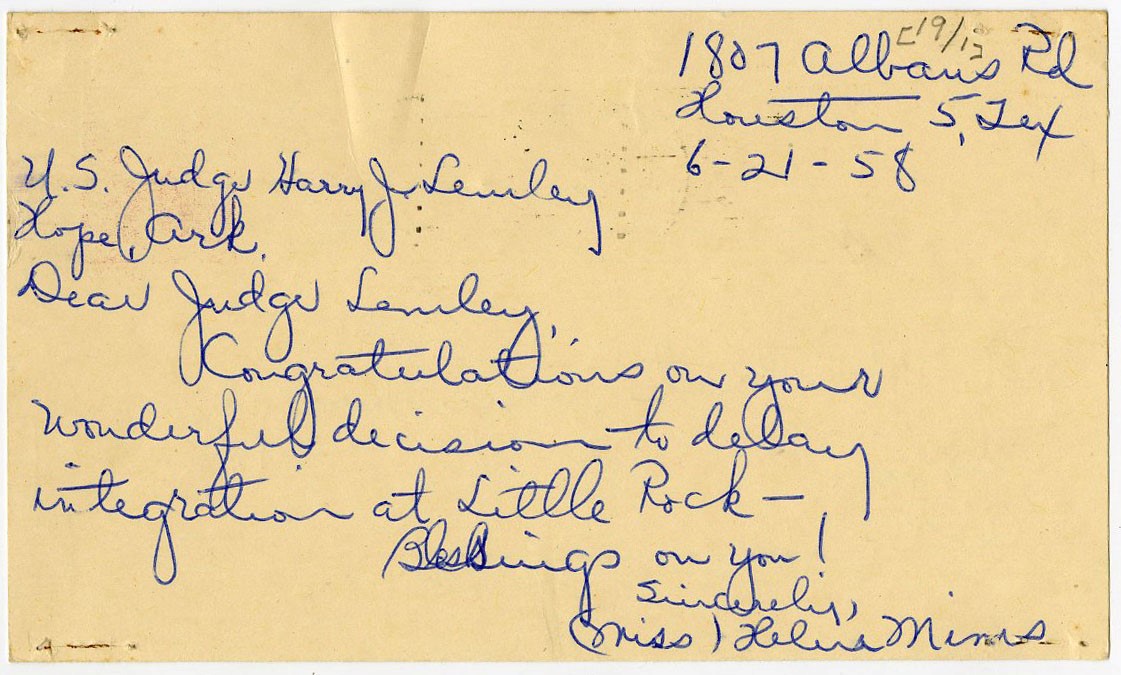 [19/12
1807 Albans Rd
Houston 5, Tex
6-21-58
U.S. Judge Harry J. Lemley
Hope, Ark.
Dear Judge Lemley,
Congratulations on your
wonderful decision to delay
integration at Little Rock —
Blessings on you!
Sincerely,
(Miss) Helena Mims